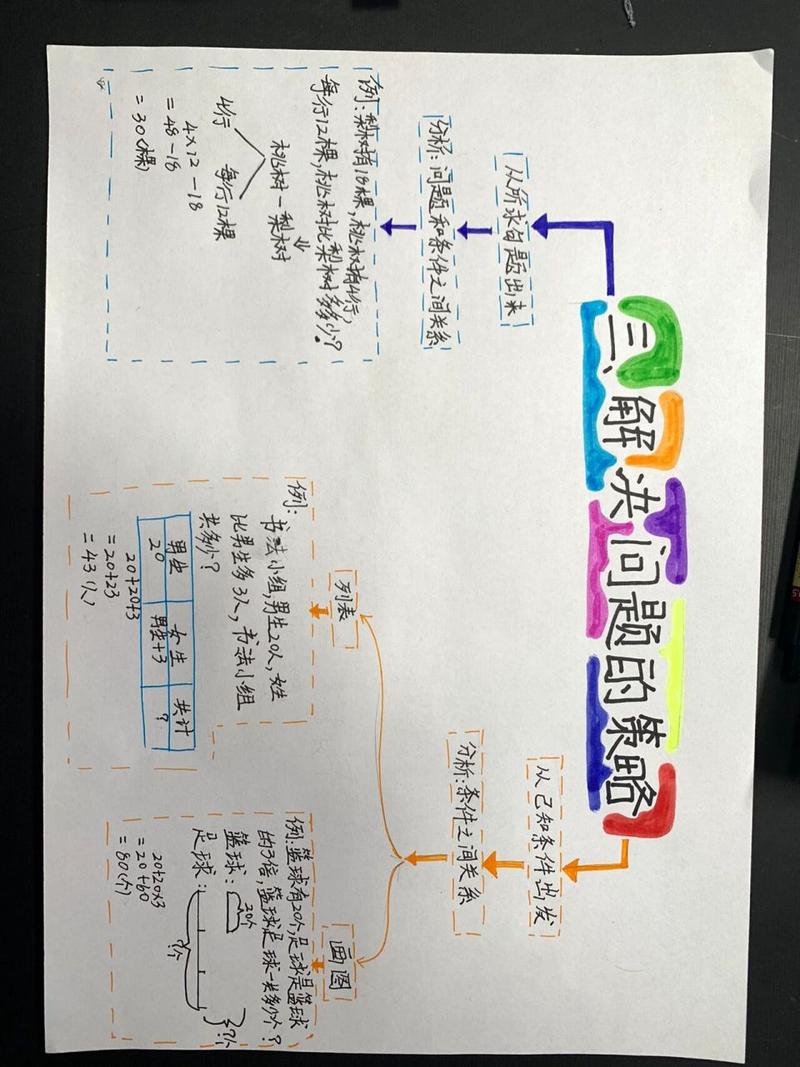 三、解决问题的策略
从所求问题出来
分析:问题和条件之间关系
例:梨树有18棵,桃树有4行,
每行12棵,桃树比梨树多多少?
桃树-梨树
4行 每行12棵
4×12-18
=48-18
=30(棵)
从已知条件出发
分析:条件之间关系
列表
例:
书法小组,男生20人,女生
比男生多3人,书法小组
共多少?
男生 女生 共计
20 男生+3 ?
20+20+3
=20+23
=43(人)
画图
例:篮球有20个,足球是篮球
的3倍,篮球足球一共多少个?
20个
篮球:
足球:
?个
?个
20+20×3
=20+60
=80(个)